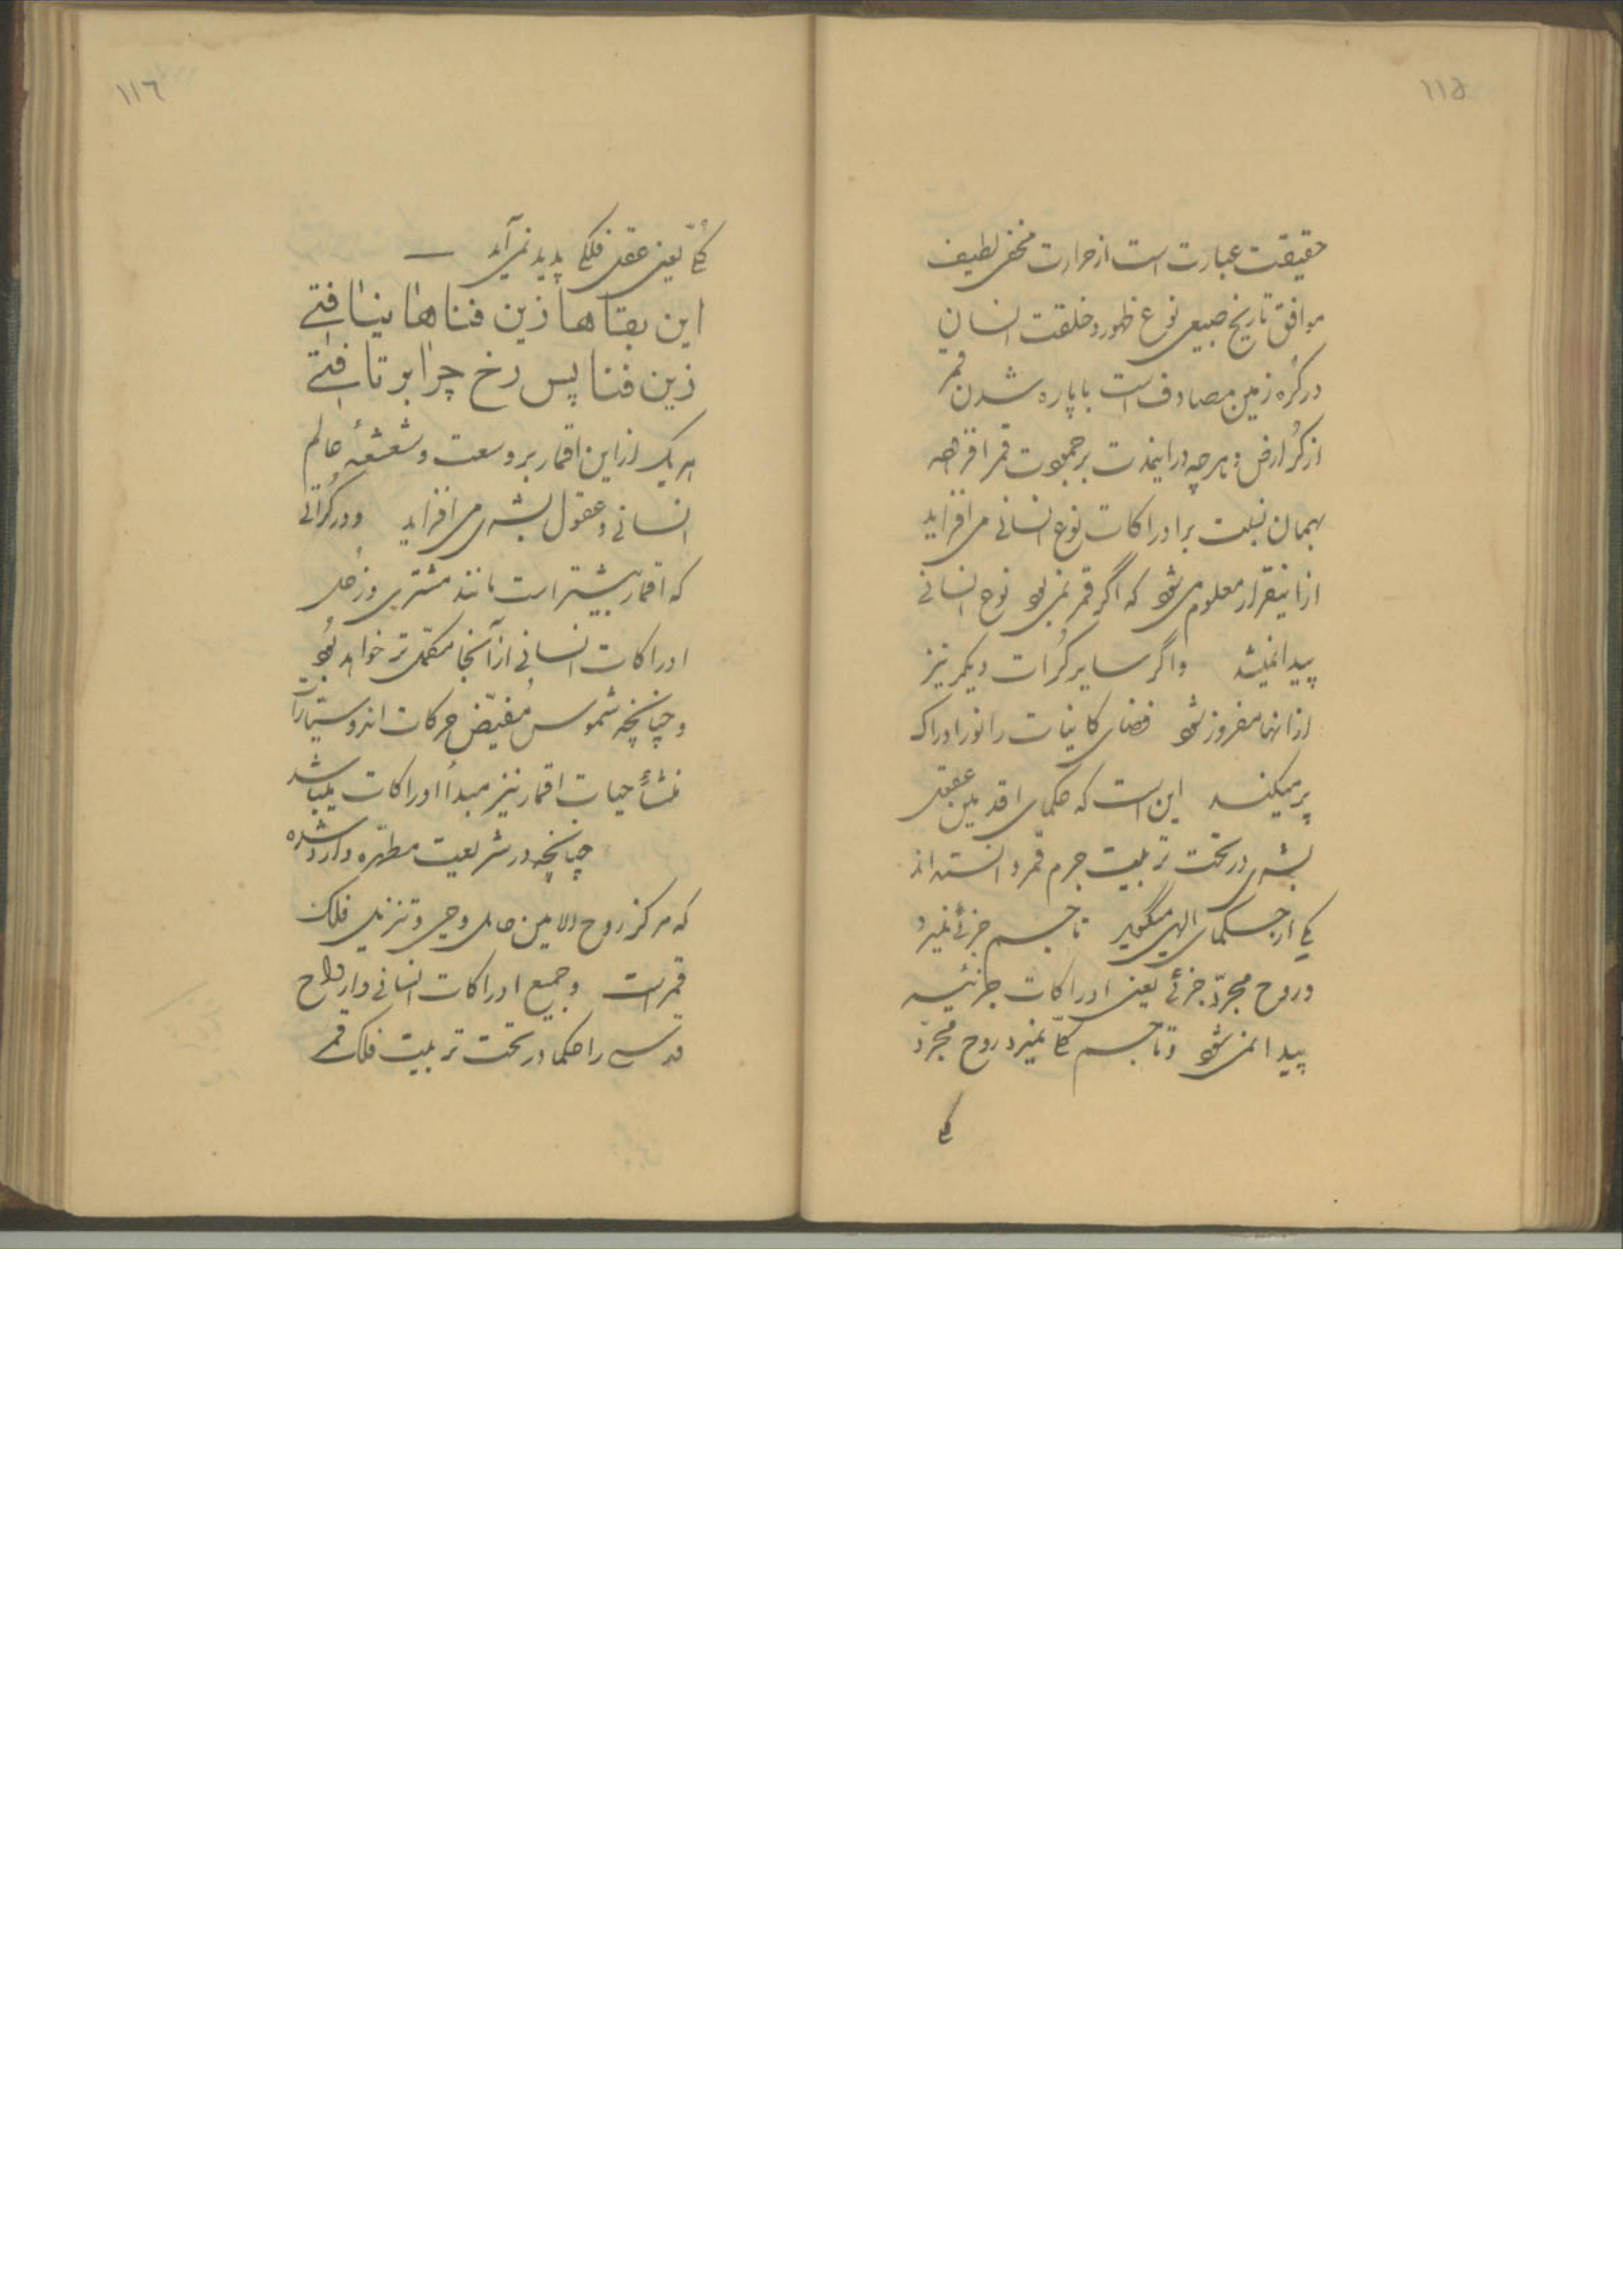 ١١۵
حقیقت عبارت است از حرارت مخفی لطیف
موافق تاریخ طبیعی نوع ظهور و خلقت انسان
در کُره زمین مصادف است با پاره شدن قمر
از کُره ارض و هرچه در اینمدت بر جمودت قمر افزوده
بهمان نسبت بر ادراکات نوع انسانی می افزاید
از اینقرار معلوم می شود که اگر قمر نمی بود نوع انسانی
پیدا نمیشد و اگر سایر کُرات دیگر نیز
از آنها مفروز شود فضای کاینات را نور ادراک
پر میکند این است که حکمای اقدمین عقول
بشری در تحت تربیت جرم قمر دانسته اند
یکی از حکمای الهی میگوید تا جسم جزئی نمیرد
و روح مجرّد جزئی یعنی ادراکات جزئیه
پیدا نمی شود و تا جسم کلّی نمیرد روح مجرّد
کلی
١١٦
کلّی یعنی عقل فلکی پدید نمی آید —
این بقاها ازین فناها نیافتی
زین فنا پس رخ چرا بر تافتی
هر یک از این اقمار بر وسعت و شعشعهٔ عالم
انسانی و عقول بشری می افزاید و در کُراتی
که اقمار بیشتر است مانند مشتری و زحل
ادراکات انسانی از آنجا مکمّل تر خواهد بود
و چنانچه شموس مُفیّض حرکات اند و سیّارات
منشأ حیات اقمار نیز مبدأ ادراکات میباشد
چنانچه در شریعت مطهّره وارد شده
که مرکز روح الامین حامل وحی و تنزیل فلک
قمر است و جمیع ادراکات انسانی و ارواح
قدسی را حکما در تحت تربیت فلک قمر